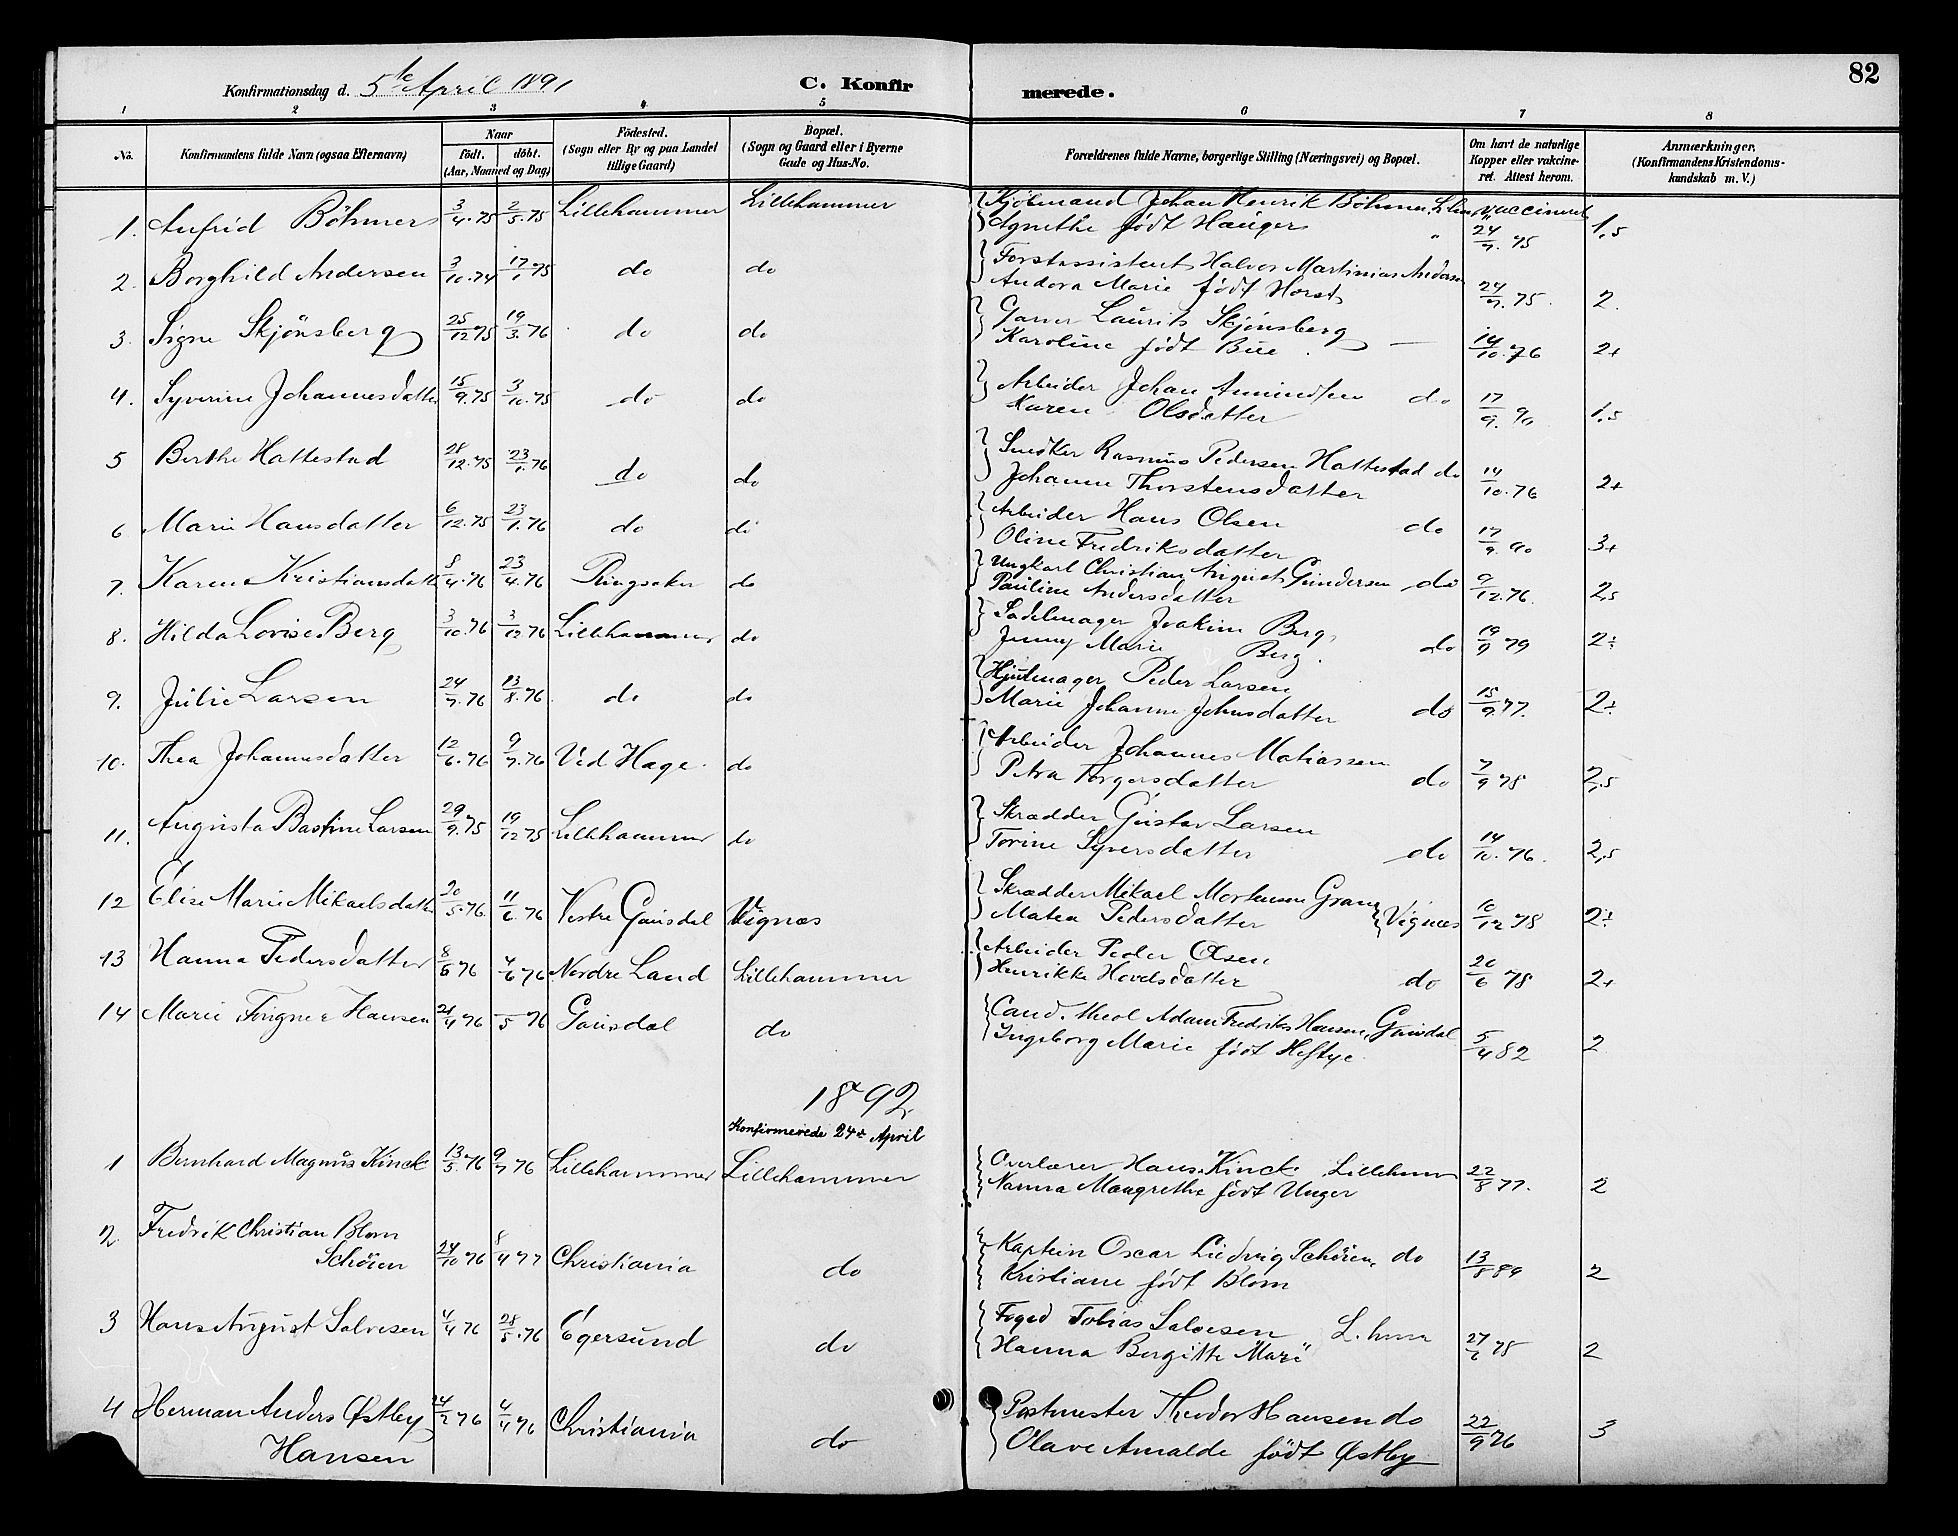 82
Konfirmationsdag d. 5te April 1891 C. Konfirmerede.
1 2 3 4 5 6 7 8
No. Konfirmandens fulde Navn (ogsaa Efternavn) Naar født. døbt. (Aar, Maaned og Dag) Fødested. (Sogn eller By og paa Landet tillige Gaard) Bopæl. (Sogn og Gaard eller i Byerne Gade og Hus-No. Forældrenes fulde Navne, borgerlige Stilling (Næringsvei) og Bopæl. Om havt de naturlige Kopper eller vakcineret. Attest herom. Anmærkninger. (Konfirmandens Kristendomskundskab m. V.)
1. Anfrid Böhmer 3/4.75 2/5.75 Lillehammer Lillehammer Kjöbmand Johan Henrik Böhmer, L.hmr vaccineret
Agnethe født Hauger " 24/9.75 1,5
2. Borghild Andersen 3/10.74 17/1.75 do do Forstassistent Halvor Martinius Andersen
Andora Marie født Horst 24/9.75. 2.
3. Signe Skjönsberg 25/12 75 19/3.76 do do Garver Laurits Skjönsberg
Karoline født Bue. — 14/10.76 2+
4. Syverine Johannesdatter 15/9.75 3/10.75 do do Arbeider Johan Amundsen do
Karen Olsdatter 17/9.90 1,5
5 Berthe Hattestad 28/12.75 23/1.76 do do Snedker Rasmus Pedersen Hattestad do
Johanne Thorstensdatter 14/10.76 2+
6 Marie Hansdatter 6/12.75 23/1.76 do do Arbeider Hans Olsen do
Oline Fredriksdatter 17/9.90 3+
7. Karen Kristiansdatt 8/4.76 23/4.76 Ringsaker do Ungkarl Christian August Gundersen do
Pauline Andersdatter 9/12.76. 2,5
8. Hilda Lovise Berg 3/10.76 3/12 76 Lillehammer do Sadelmager Joakim Berg,
Jenny Marie Berg. do 19/9 79 2÷
9. Julie Larsen 24/7.76 13/8.76 do do Hjulmager Peder Larsen
Marie Johanne Johnsdatter do 15/9.77. 2÷
10. Thea Johannesdatter 12/6.76 9/7.76 Ved Hage. do Arbeider Johannes Matiassen
Petra Torgersdatter do 7/9 78 2,5
11. Augusta Bastine Larsen 29/9.75 19/12 75 Lillehammer do Skrædder Gustav Larsen
Torine Syversdatter do 14/10.76. 2,5
12 Elise Marie Mikaelsdatter 20/5.76. 11/6 76 Vestre Gausdal Vignæs Skrædder Mikael Mortensen Gran
Matea Pedersdatter Vignæs 10/12 78 2÷
13 Hanna Pedersdatter 8/5 76 4/6 76 Nordre Land Lillehammer Arbeider Peder Olsen
Henrikke Hovelsdatter do 20/6 78 2+
14 Marie Hansen 21/4 76 /5 76 Gausdal do Cand. theol Adam Fredrik Hansen, Gausdal
Ingeborg Marie født Heftye. 5/4 82 2
1892.
Konfirmerede 24de April
1 Bernhard Magnus Kinck 13/5 76 9/7 76 Lillehammer Lillehammer Overlærer Hans Kinck. Lillehmr
Nanna Margrethe født Unger 22/8 77. 2
2. Fredrik Christian Blom
Schöien 24/10 76 8/4 77 Christiania do Kaptein Oscar Ludvig Schöien, do
Kristiane født Blom 13/8 89 2
3 Hans August Salvesen 4/4 76 28/5.76 Egersund do Foged Tobias Salvesen L. hmr
Hanna Bergitte Marie 27/6 78 2
4 Herman Anders Østby
Hansen 24/2 76 4/4 76 Christiania do Postmester Theodor Hansen do
Olave Amalde født Østby 22/9 76 3